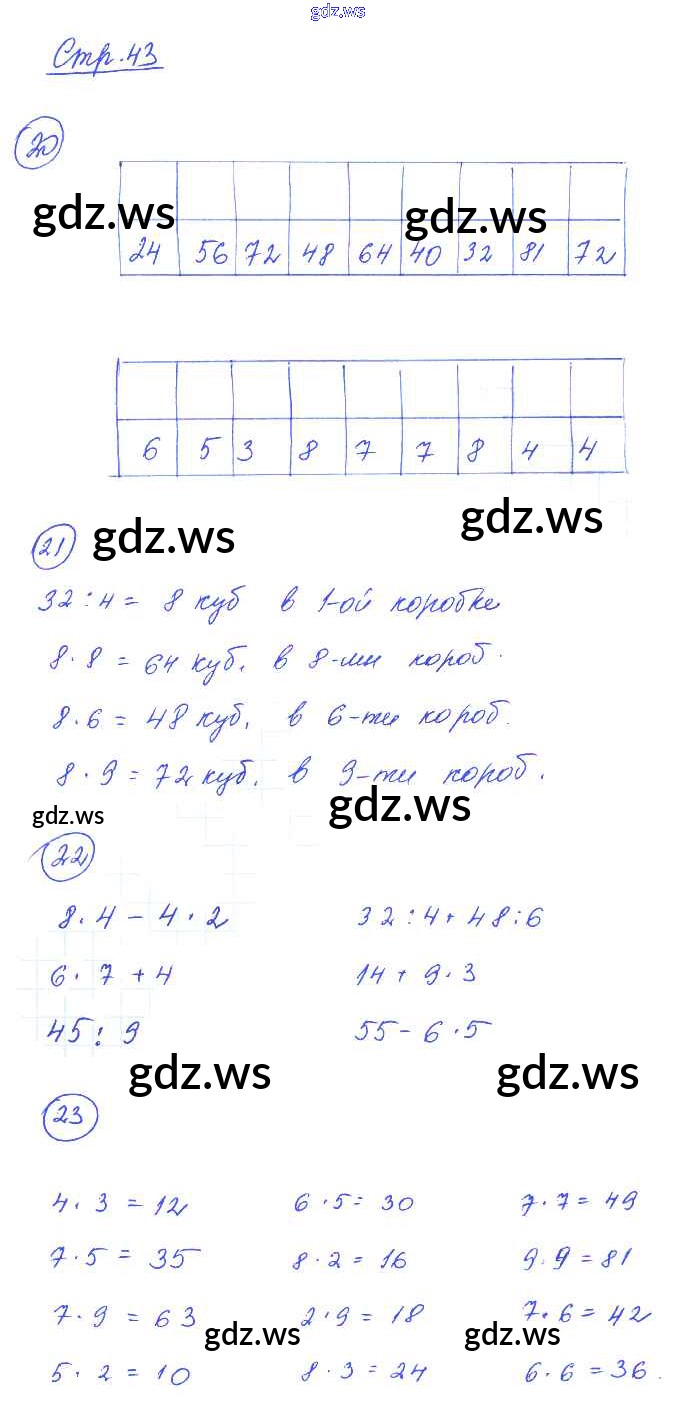 gdz.ws
Стр. 43
20
gdz.ws gdz.ws
24 56 72 48 64 40 32 81 72
6 5 3 8 7 7 8 4 4
gdz.ws
21 gdz.ws
32 : 4 = 8 куб в 1-ой коробке
8 · 8 = 64 куб. в 8-ми короб.
8 · 6 = 48 куб. в 6-ти короб.
8 · 9 = 72 куб. в 9-ти короб.
gdz.ws gdz.ws
22
8 · 4 - 4 · 2 32 : 4 + 48 : 6
6 · 7 + 4 14 + 9 · 3
45 : 9 55 - 6 · 5
gdz.ws gdz.ws
23
4 · 3 = 12 6 · 5 = 30 7 · 7 = 49
7 · 5 = 35 8 · 2 = 16 9 · 9 = 81
7 · 9 = 63 2 · 9 = 18 7 · 6 = 42
gdz.ws gdz.ws
5 · 2 = 10 8 · 3 = 24 6 · 6 = 36.